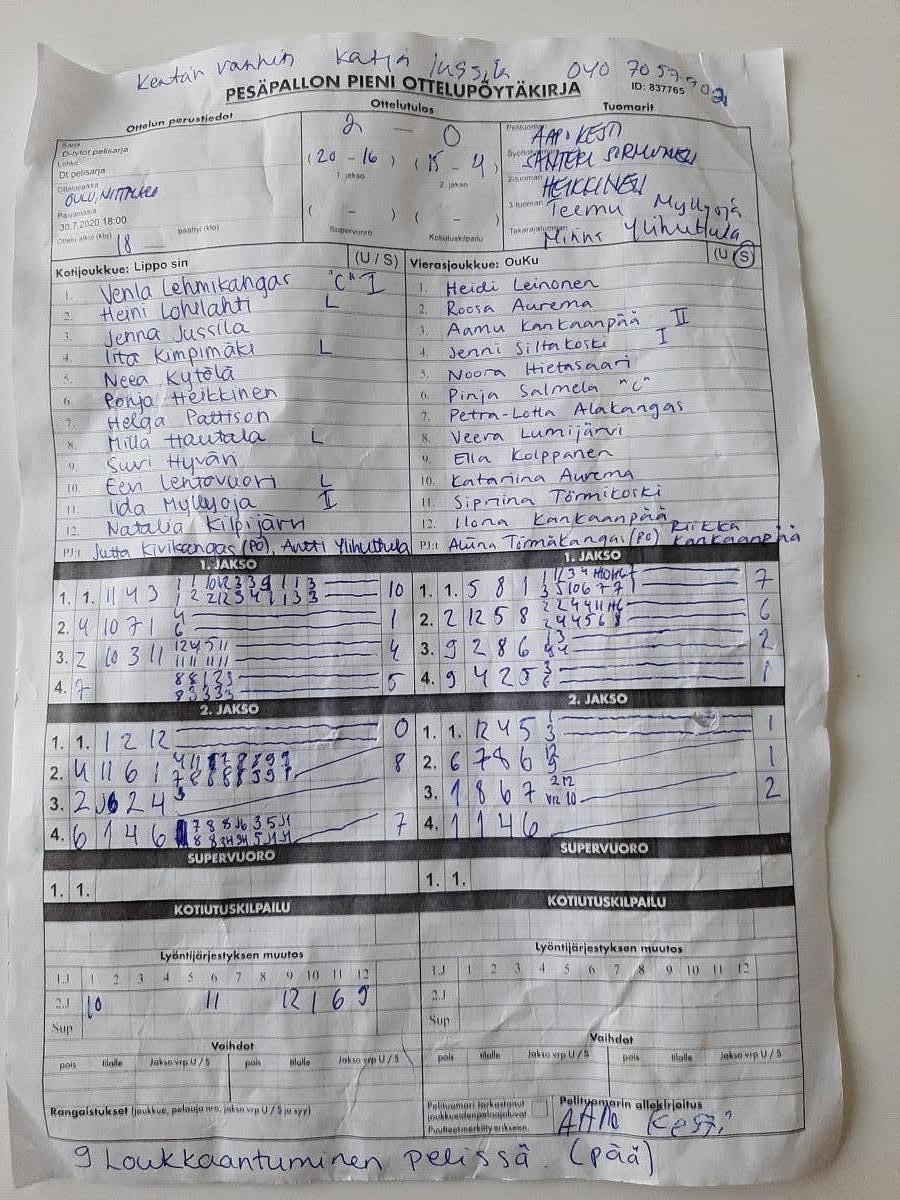 Kentän vanhin Katja Jussila 040 7057902
PESÄPALLON PIENI OTTELUPÖYTÄKIRJA ID: 837765
Ottelun perustiedot Ottelutulos Tuomarit
Sarja
D-tytöt pelisarja
Lohko
Dt pelisarja
Ottelupaikka
OULU, NIITTYARO
Päivämäärä
30.7.2020 18:00
Ottelu alkoi (klo) 18 päättyi (klo)
2 - 0
(20 - 16) (15 - 4)
1. jakso 2. jakso
( - ) ( - )
Supervuoro Kotiutuskilpailu
Pelituomari AAPO KESTI
Syöttötuomari SANTERI SORMUNEN
2-tuomari HEIKKINEN
3-tuomari Teemu Myllyoja
Takarajatuomari Minna Ylihuttula
Kotijoukkue: Lippo sin (U / S)
1. Venla Lehmikangas "C" I
2. Heini Lohilahti L
3. Jenna Jussila
4. Iita Kimpimäki L
5. Neea Kytölä
6. Ronja Heikkinen
7. Helga Pattison
8. Milla Hautala L
9. Suvi Hyvän
10. Eevi Lentovuori L
11. Iida Myllyoja I
12. Natalia Kilpijärvi
PJ:t Jutta Kivikangas (PO), Antti Ylihuttula
Vierasjoukkue: OuKu (U / S)
1. Heidi Leinonen
2. Roosa Aurema
3. Aamu Kankaanpää II
4. Jenni Siltakoski I
5. Noora Hietasaari
6. Pinja Salmela "C"
7. Petra-Lotta Alakangas
8. Veera Lumijärvi
9. Ella Kolppanen
10. Katariina Aurema
11. Siprina Törmikoski
12. Ilona Kankaanpää
PJ:t Alina Törmäkangas (PO) Riikka Kankaanpää
1. JAKSO
1. 1. 11 4 3 10
2. 4 10 7 1 1
3. 2 10 3 11 4
4. 7 5
1. JAKSO
1. 1. 5 8 1 7
2. 2 12 5 8 6
3. 9 2 8 6 2
4. 9 4 2 5 1
2. JAKSO
1. 1. 1 2 12 0
2. 4 11 6 1 8
3. 2 6 2 4
4. 6 1 4 6 7
2. JAKSO
1. 1. 12 4 5 1
2. 6 7 8 6 1
3. 1 8 6 7 2
4. 1 1 4 6
SUPERVUORO
1. 1.
SUPERVUORO
1. 1.
KOTIUTUSKILPAILU
KOTIUTUSKILPAILU
Lyöntijärjestyksen muutos
1.J 1 2 3 4 5 6 7 8 9 10 11 12
2.J 10 11 12 1 6 9
Sup
Lyöntijärjestyksen muutos
1.J 1 2 3 4 5 6 7 8 9 10 11 12
2.J
Sup
Vaihdot
pois tilalle Jakso vrp U / S pois tilalle Jakso vrp U / S
Vaihdot
pois tilalle Jakso vrp U / S pois tilalle Jakso vrp U / S
Rangaistukset (joukkue, pelaaja nro, jakso vrp U / S ja syy)
Pelituomari tarkastanut
joukkueiden pelaajaluvat
Puutteet merkitty erikseen.
Pelituomarin allekirjoitus
AAPO Kesti
9 Loukkaantuminen pelissä. (pää)